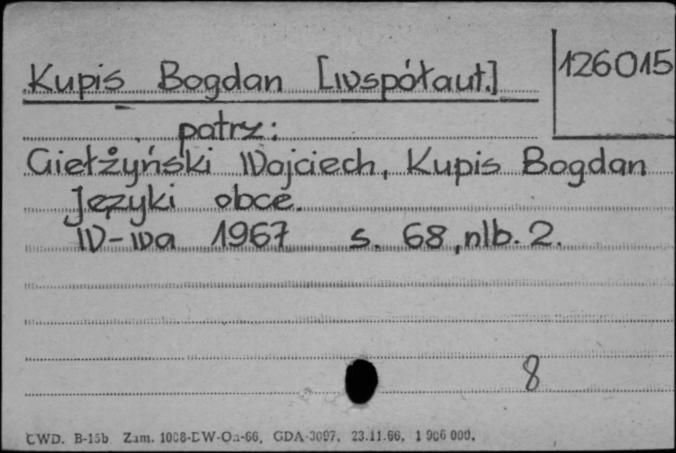 Kupis Bogdan [współaut.]
126015
patrz:
Giełżyński Wojciech, Kupis Bogdan
Języki obce.
W-wa 1967 s. 68, nlb. 2.
8
CWD. B-15b Zam. 1008-DW-On-66. GDA-3097. 23.11.66. 1 906 000.